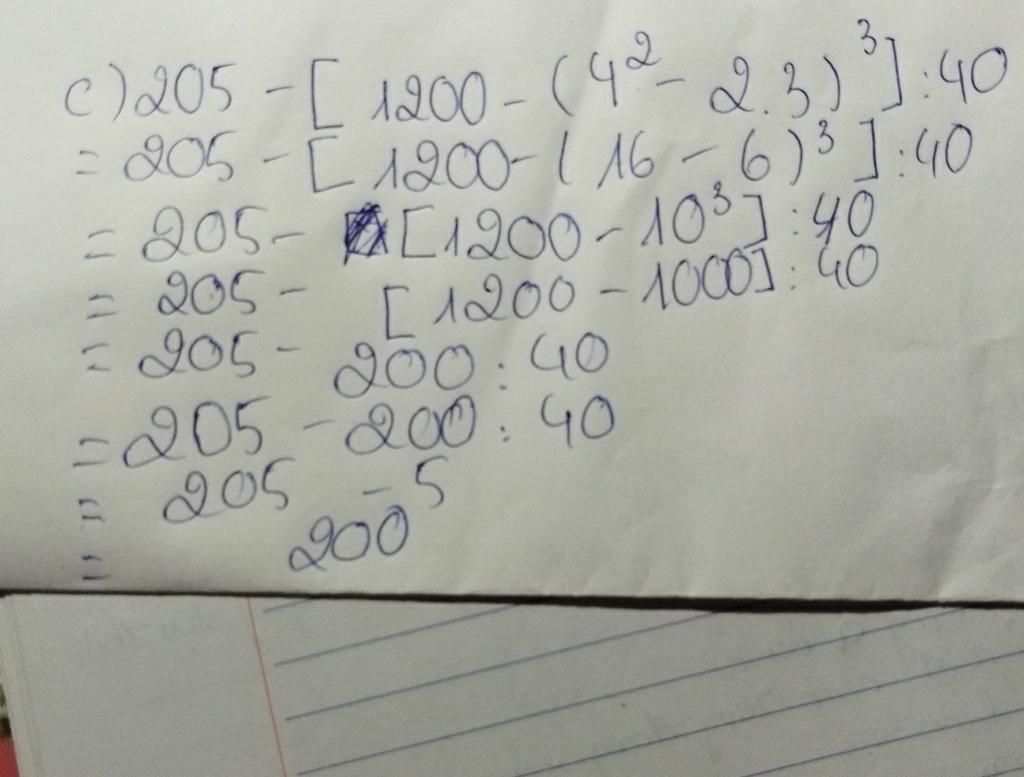 c) 205 - [ 1200 - (4² - 2.3)³] : 40
= 205 - [ 1200 - ( 16 - 6)³ ] : 40
= 205 - [1200 - 10³] : 40
= 205 - [1200 - 1000] : 40
= 205 - 200 : 40
= 205 - 200 : 40
= 205 - 5
= 200